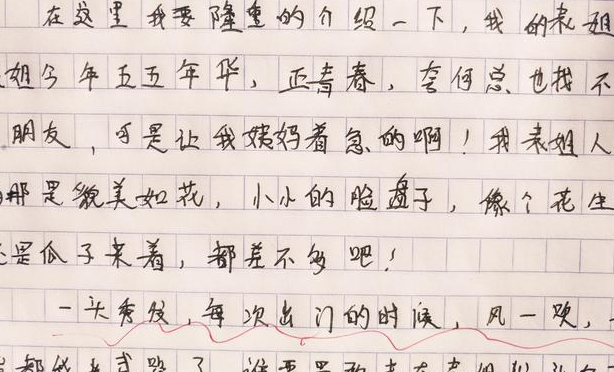 在这里我要隆重的介绍一下,我的表姐
姐今年五五年华,正青春,奈何总也找不
朋友,可是让我姨妈着急的啊!我表姐人
那是貌美如花,小小的脸盘子,像个花生
是瓜子来着,都差不多吧!
一头秀发,每次出门的时候,风一吹,